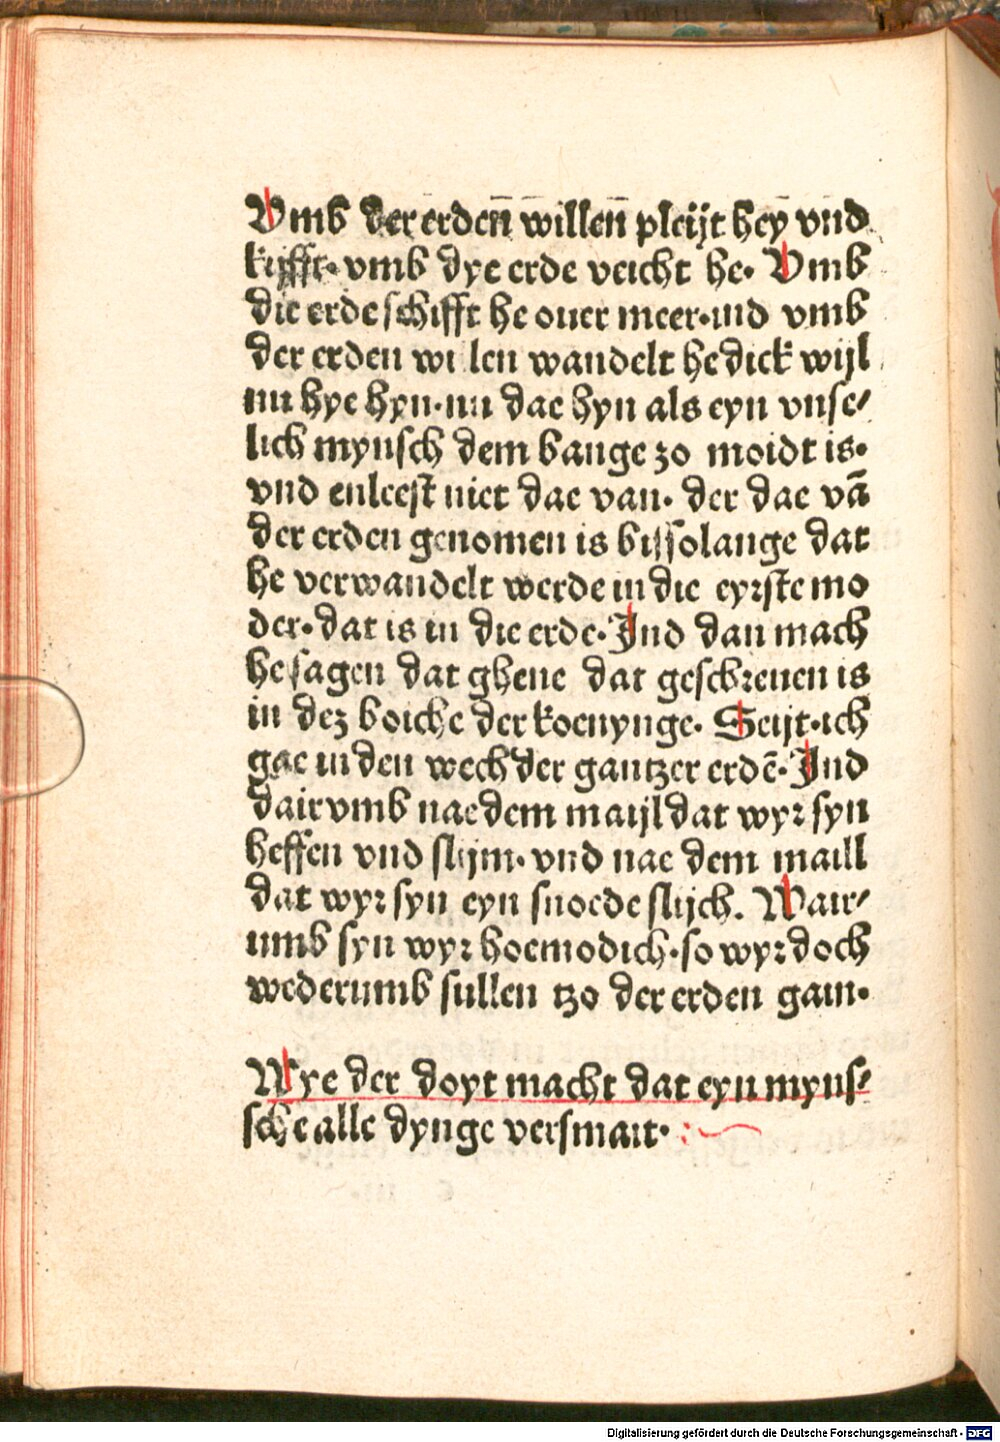 Vmb der erden̄ willen̄ pleijt hey vnd
kijfft· vmb dye erde veicht he· Vmb
die erde schifft he ouer meer·ind vmb
der erden willen wandelt he dick wijl
nu hye hyn·nu dae hyn als eyn vnse⸗
lich mynsch dem bange zo moidt is·
vnd enleest niet dae van· der dae vā
der erden genomen is bissolange dat
he verwandelt werde in die eyrste mo
der· dat is in die erde· Ind dan mach
he sagen dat ghene dat geschreuen is
in dez boiche der koenynge· Seijt·ich
gae in den wech der gantzer erdē· Ind
dairvmb nae dem maijl dat wyr syn
heffen vnd slijm· vnd nae dem maill
dat wyr syn eyn snoede slijch. Wair⸗
umb syn wyr hoemodich·so wyr doch
wederumb sullen tzo der erden gain·
Wye der doyt macht dat eyn myns⸗
sche alle dynge versmait·
Digitalisierung gefördert durch die Deutsche Forschungsgemeinschaft - DFG